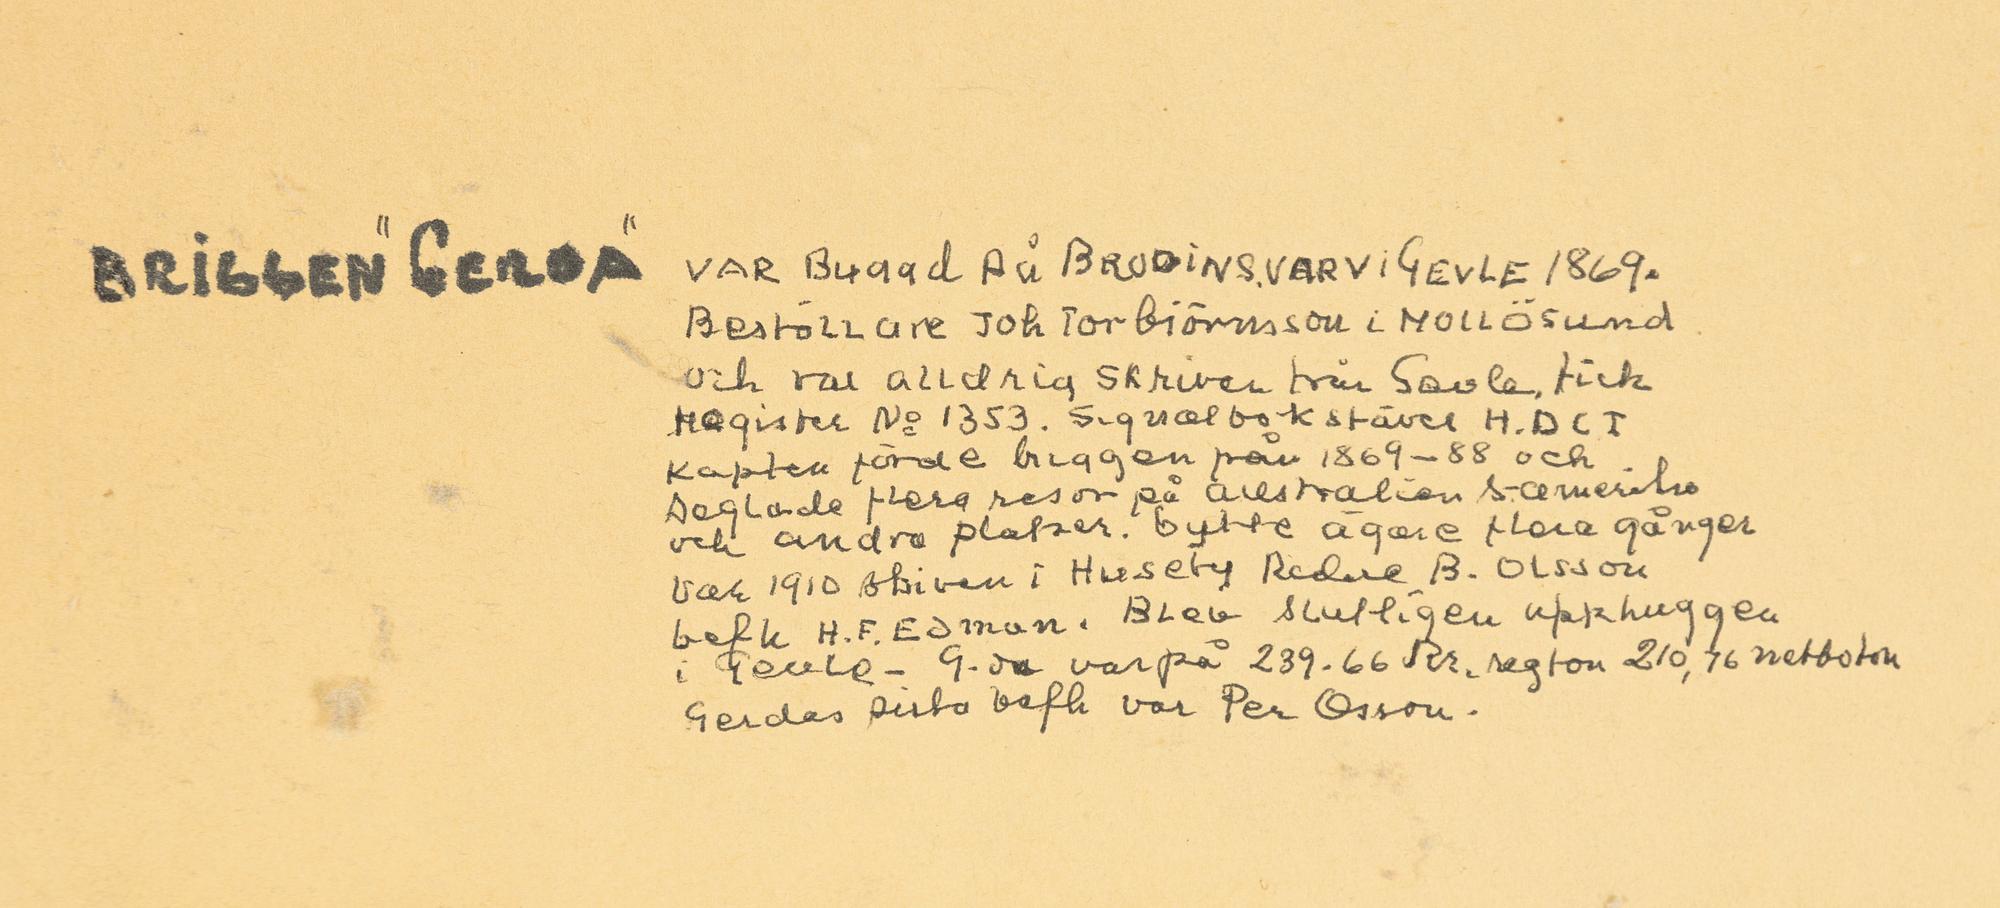 BRIGGEN "GERDA" VAR Byggd På BRODINS.VARV i GEVLE 1869.
Beställare Joh Torbiörnsson i MOLLÖSund
och var alldrig skriven från Gevle, fick
Register No 1353. Signalbokstäver H.D C T
Kapten förde briggen från 1869-88 och
Seglade flera resor på Australien S-amerika
och andra platser. bytte ägare flera gånger
Var 1910 skriven i Huseby Redare B. Olsson
befh H.F. Edman. Blev slutligen upphuggen
i Gevle - G.da var på 239.66 Rr. regton 210,76 nettoton
Gerdas sista befh var Per Osson.